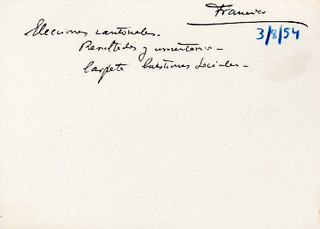 Francia
3/8/54
Elecciones cantonales.
Resultados y comentario -
Carpeta Cuestiones Sociales -